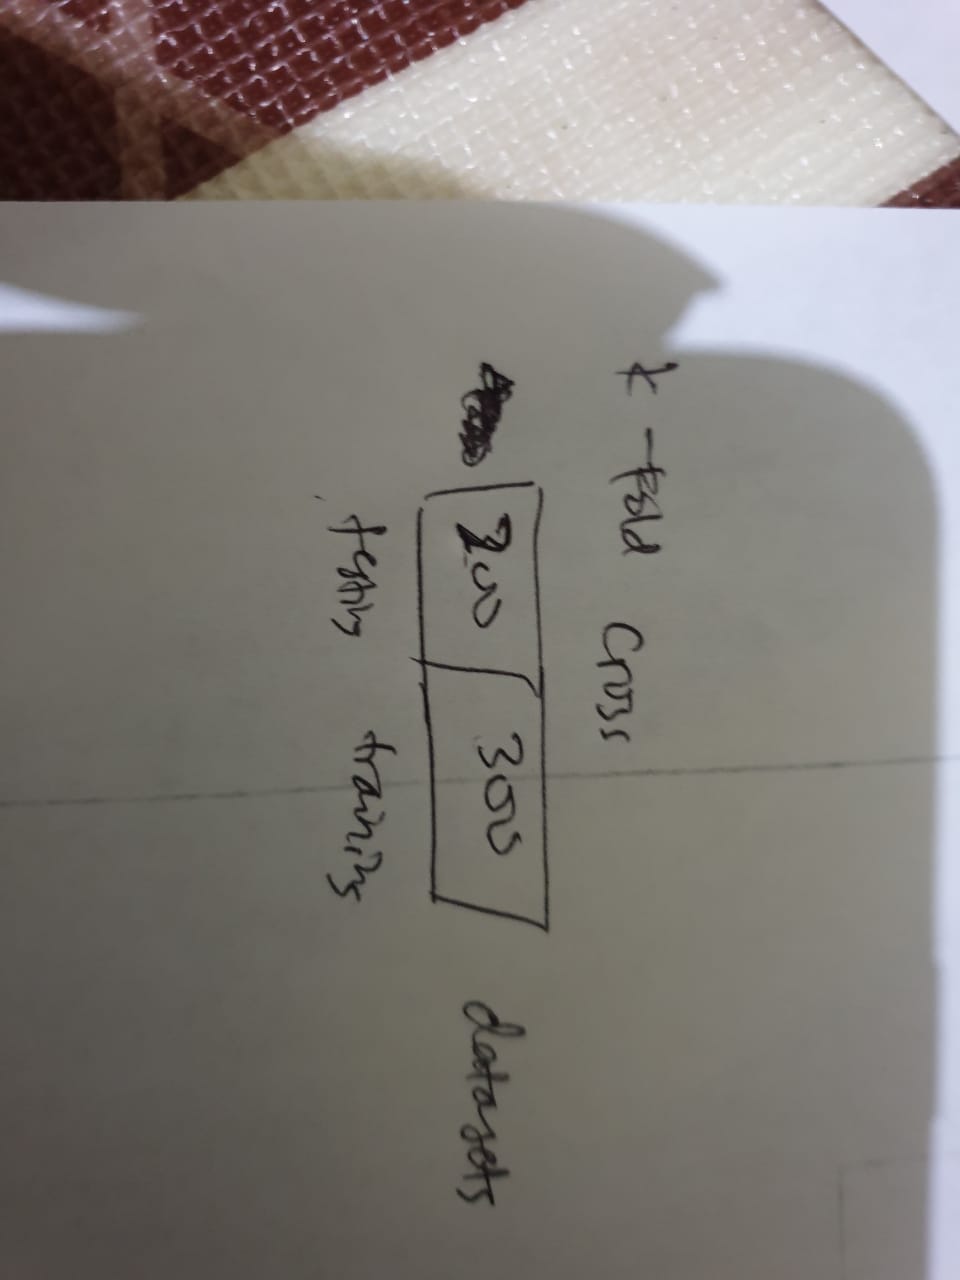 k-fold Cross
200 300 datasets
testing training